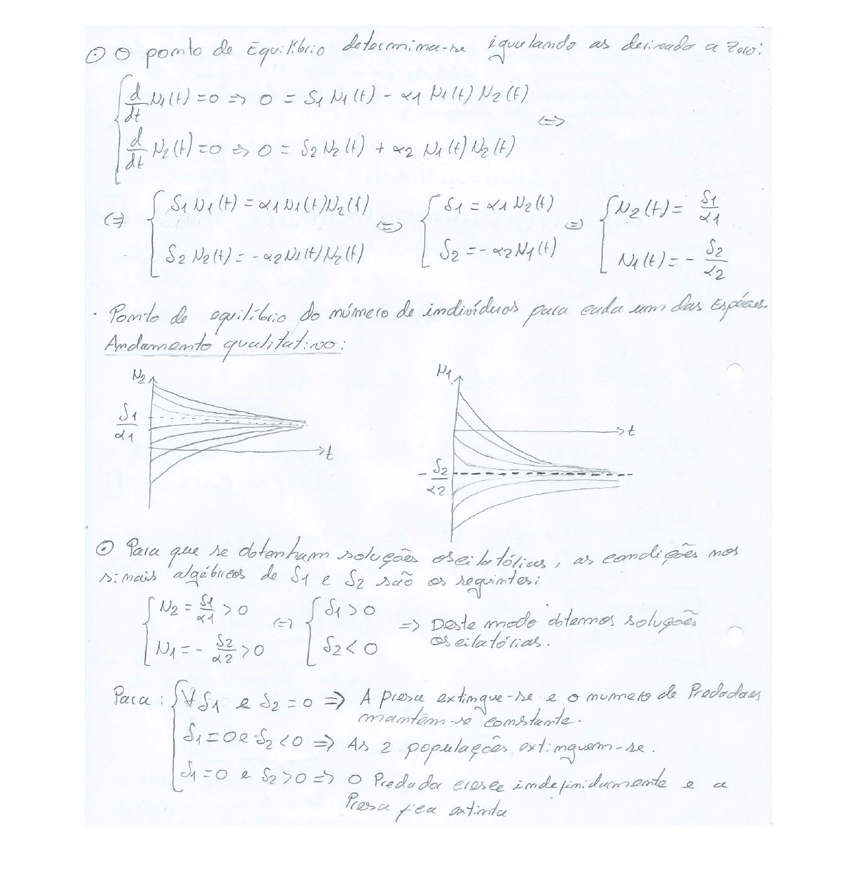 ⊙ O ponto de Equilíbrio determina-se igualando as derivada a zero:
{ d/dt N1(t) = 0 => 0 = δ1 N1(t) - α1 N1(t) N2(t)
d/dt N2(t) = 0 => 0 = δ2 N2(t) + α2 N1(t) N2(t) <=>
(=) { δ1 N1(t) = α1 N1(t) N2(t) <=> { δ1 = α1 N2(t) => { N2(t) = δ1/α1
δ2 N2(t) = -α2 N1(t) N2(t) δ2 = -α2 N1(t) N1(t) = - δ2/α2
· Ponto de equilíbrio do número de indivíduos para cada um das Espécies.
Andamento qualitativo:
N2 N1
δ1/α1 t t
- δ2/α2
⊙ Para que se obtenham soluções oscilatórias, as condições nos
sinais algébricos de δ1 e δ2 são os seguintes:
{ N2 = δ1/α1 > 0 (=) { δ1 > 0 => Deste modo obtemos soluções
N1 = - δ2/α2 > 0 δ2 < 0 oscilatórias.
Para: { ∀ δ1 e δ2 = 0 => A presa extingue-se e o numero de Predadores
mantêm-se constante.
δ1 = 0 e δ2 < 0 => As 2 populações extinguem-se.
δ1 = 0 e δ2 > 0 => O Predador cresce indefinidamente e a
Presa fica extinta